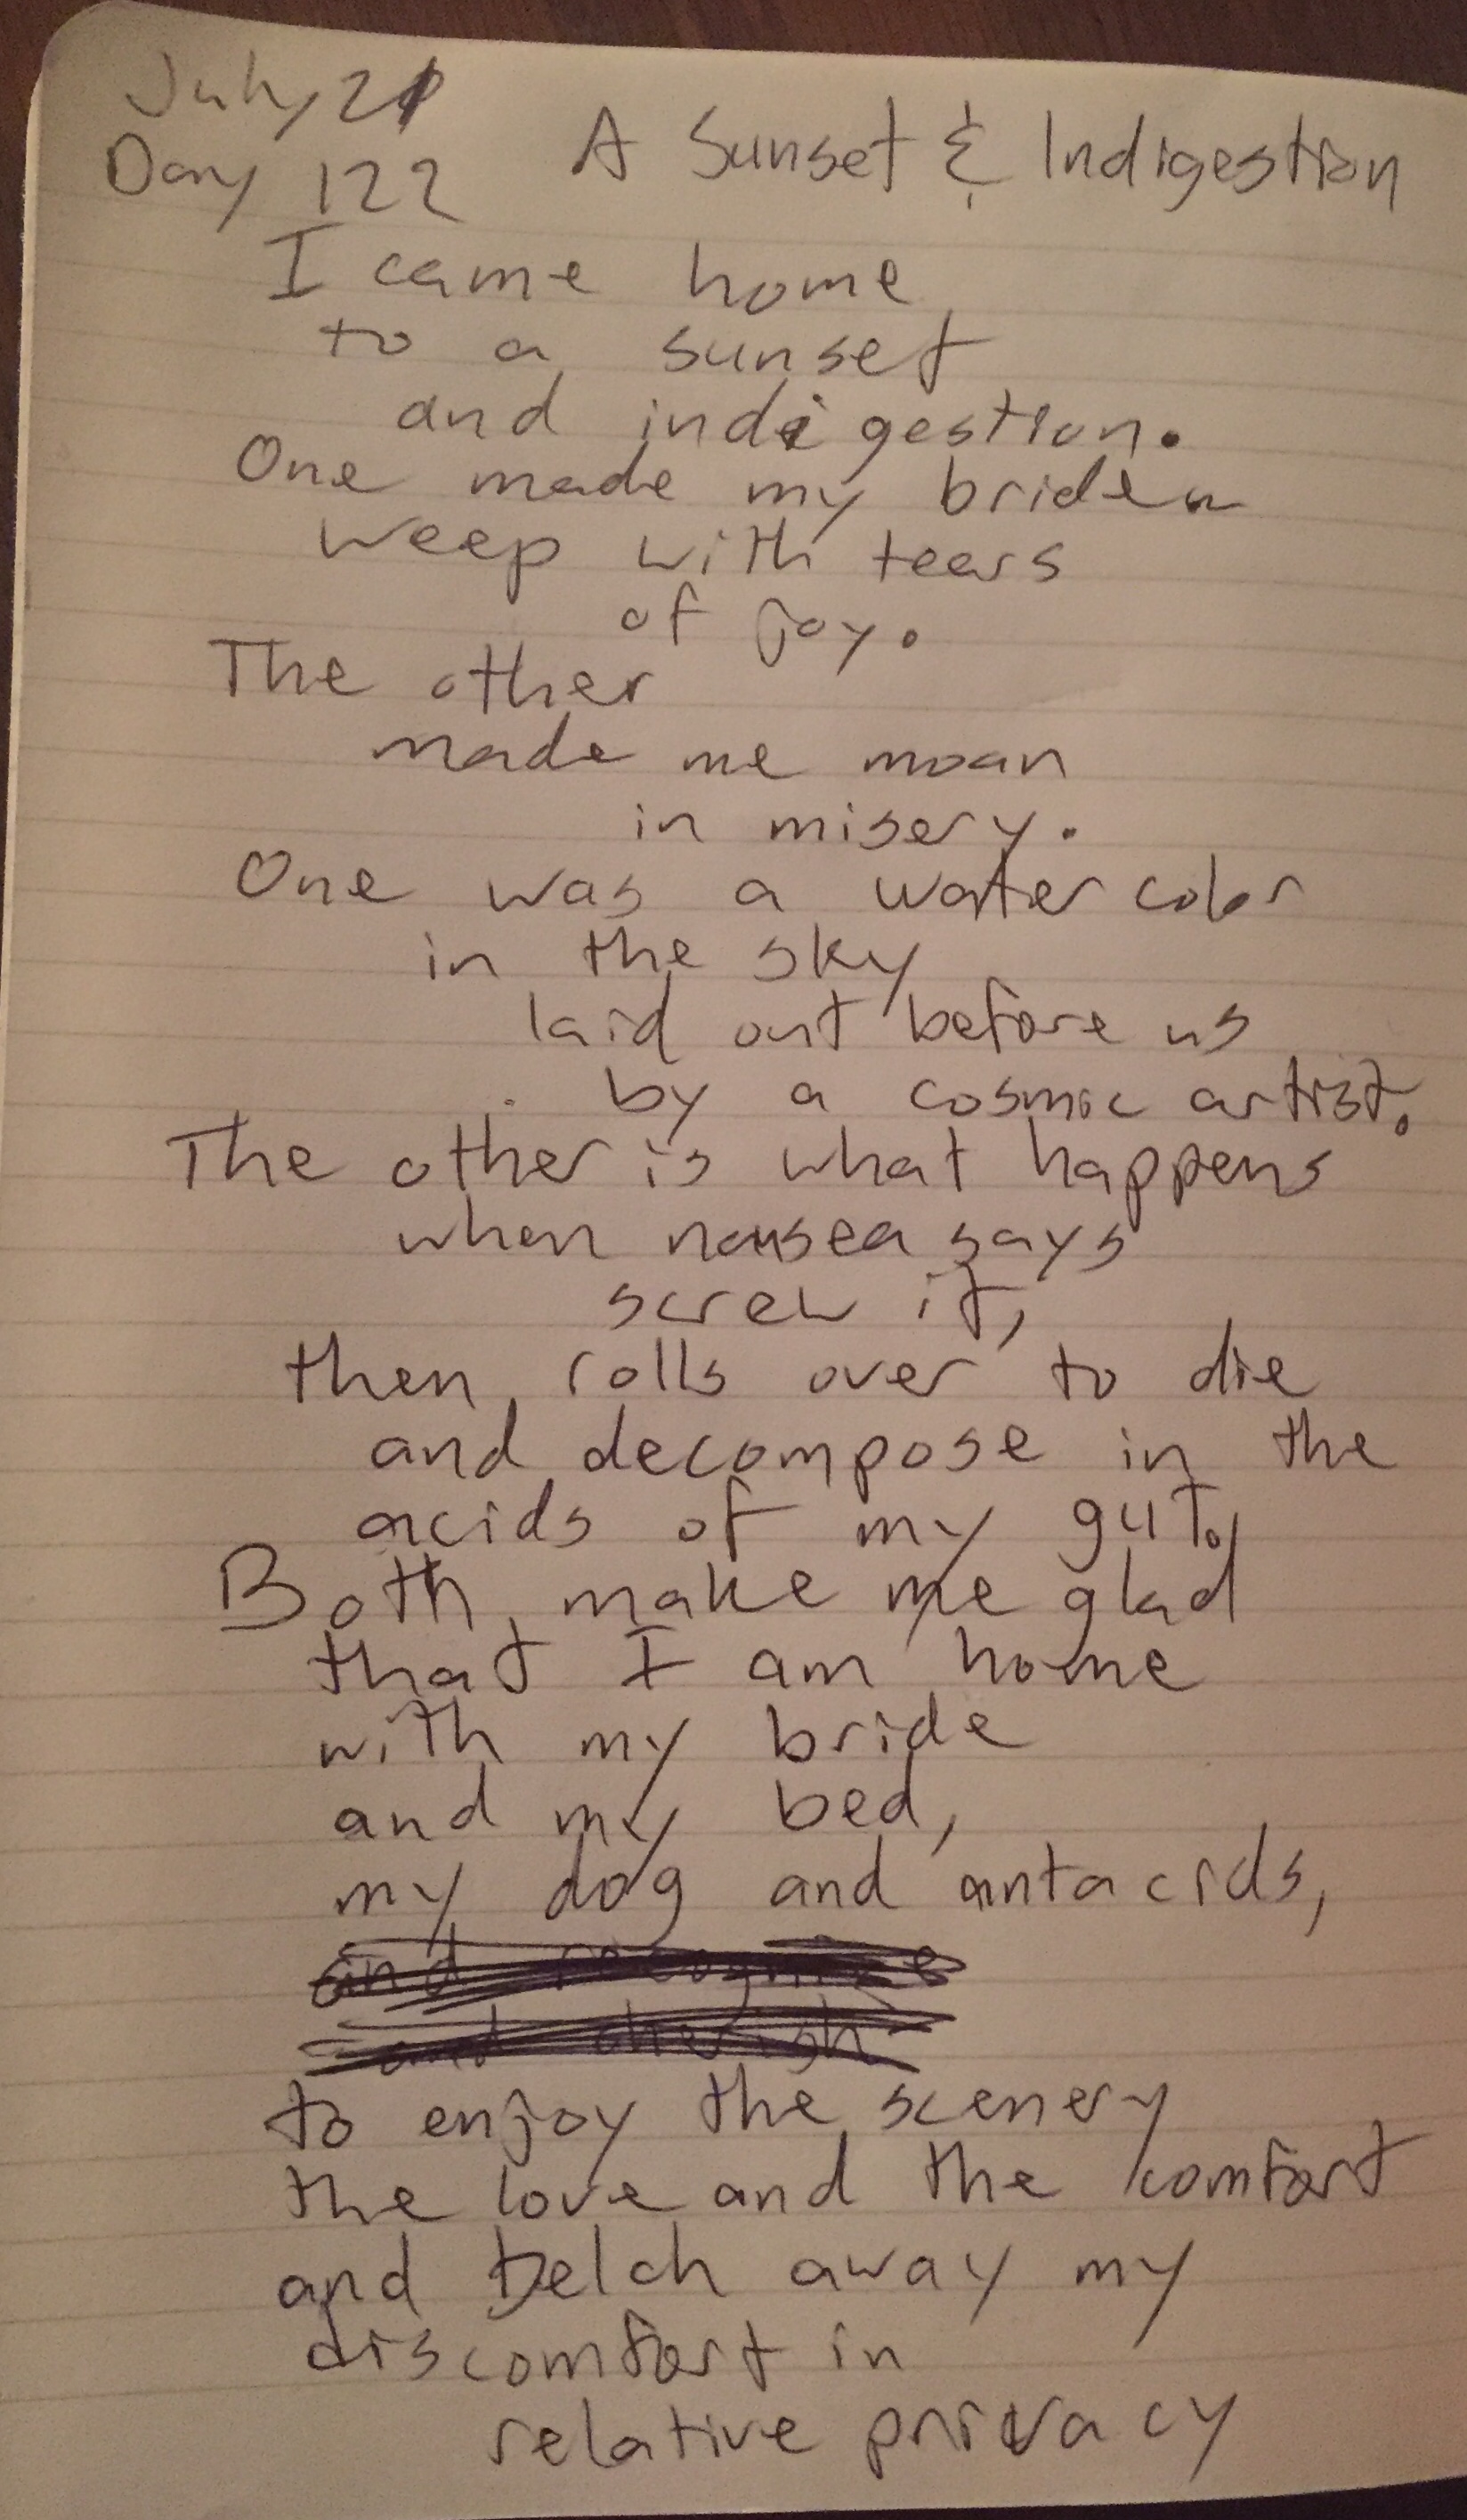 July 21
Day 122
A Sunset & Indigestion
I came home
to a sunset
and indigestion.
One made my bride
weep with tears
of joy.
The other
made me moan
in misery.
One was a watercolor
in the sky
laid out before us
by a cosmic artist.
The other is what happens
when nausea says
screw it,
then rolls over to die
and decompose in the
acids of my gut.
Both make me glad
that I am home
with my bride
and my bed,
my dog and antacids,
and recognize
and cherish
to enjoy the scenery
the love and the comfort
and belch away my
discomfort in
relative privacy